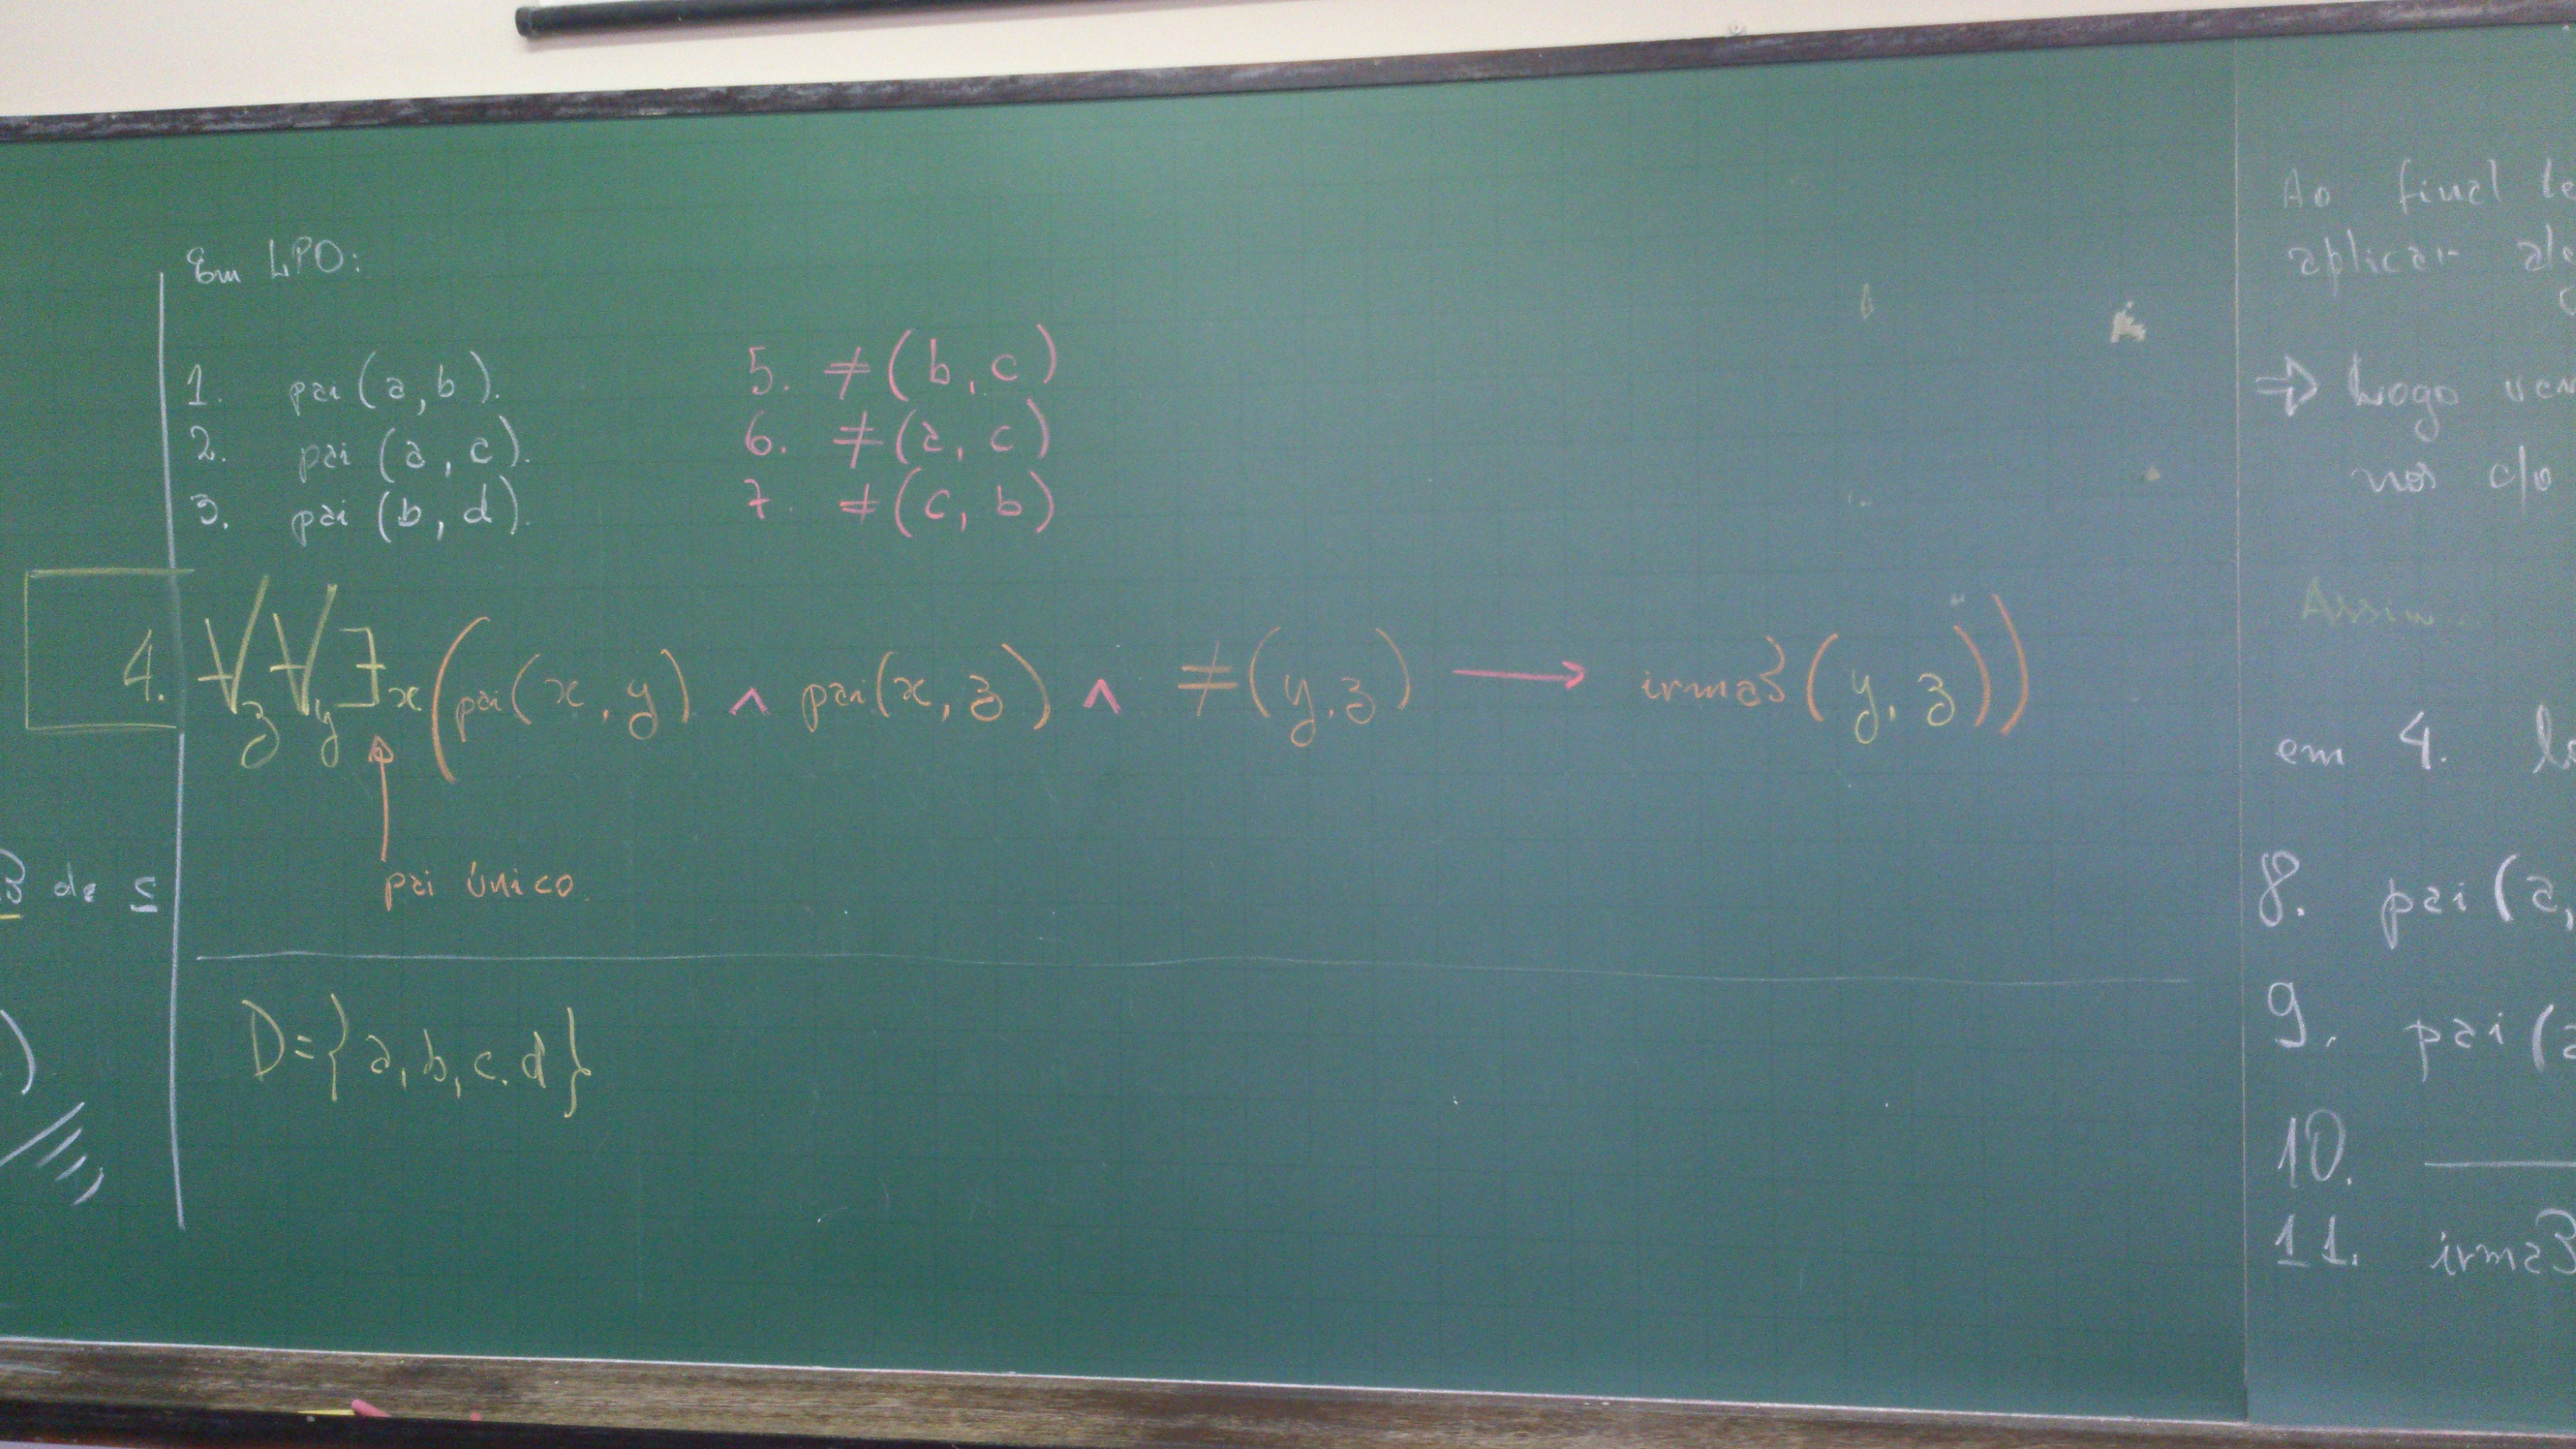 Em LPO:
1. pai(a,b).
2. pai(a,c).
3. pai(b,d).
5. ≠(b,c)
6. ≠(a,c)
7. ≠(c,b)
4. ∀z∀y∃x(pai(x,y) ∧ pai(x,z) ∧ ≠(y,z) → irmaos(y,z))
pai único.
D={a,b,c,d}
de
Ao final
aplicar
⇒ Logo
nos c/o
Assim...
em 4.
8. pai(a,
9. pai(a
10.
11. irmao